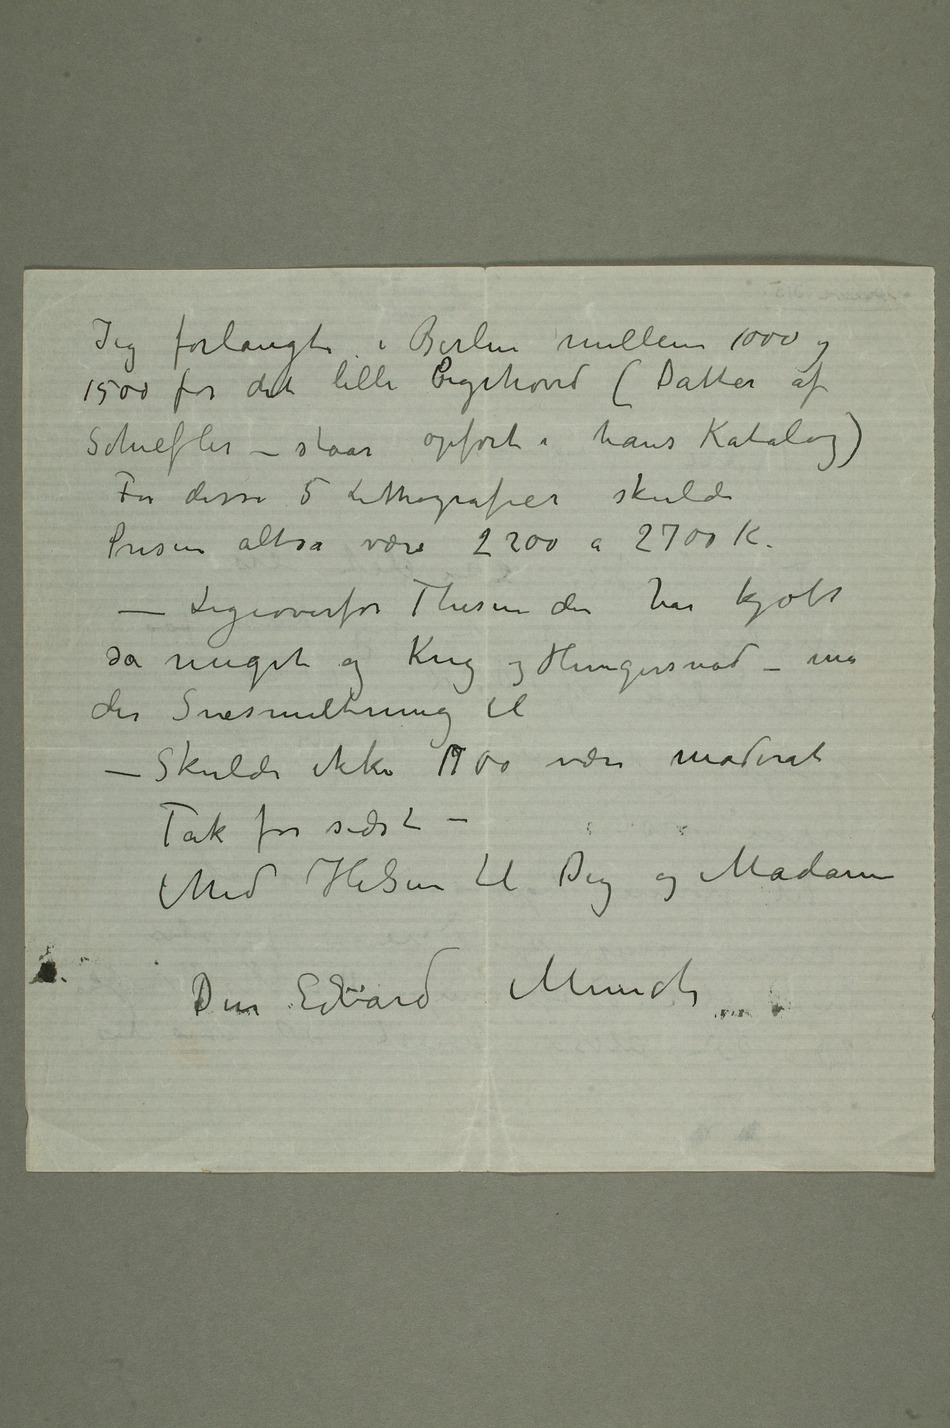 Jeg forlangte i Berlin mellem 1000 og
1500 for det lille Pigehoved (Datter af
Schiefler – staar opført i hans Katalog)
For disse 5 Lithografier skulde
Prisen altså være 2200 a 2700 K.
— Ligeoverfor Thesen der har kjøbt
så meget og Krig og Hungersnød – må
der Snesmeltning til
— Skulde ikke 1900 være moderat
Tak for sidst –
Med Hilsen til Dig og Madame
Din Edvard Munch